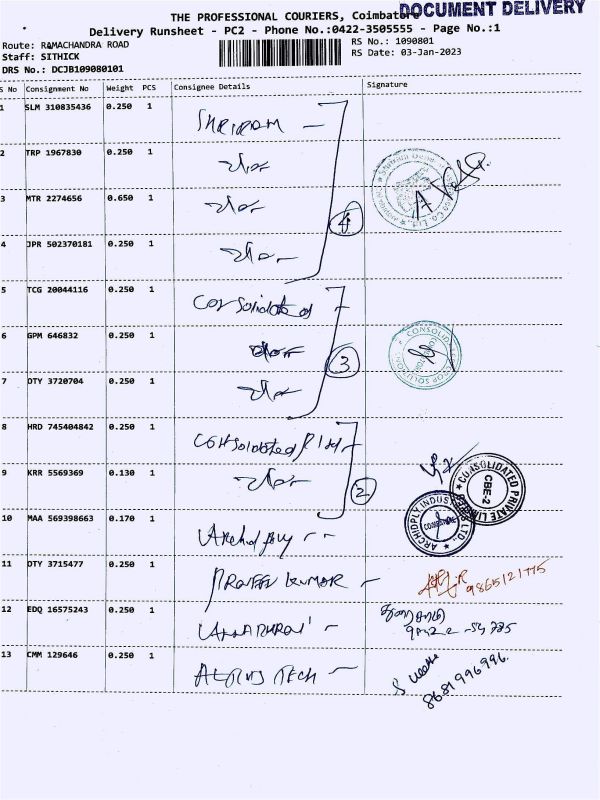 THE PROFESSIONAL COURIERS, Coimbatore
DOCUMENT DELIVERY
Delivery Runsheet - PC2 - Phone No.:0422-3505555 - Page No.:1
Route: RAMACHANDRA ROAD
RS No.: 1090801
Staff: SITHICK
RS Date: 03-Jan-2023
DRS No.: DCJB109080101
S No Consignment No Weight PCS Consignee Details Signature
1 SLM 310835436 0.250 1 SHRIRAM
2 TRP 1967830 0.250 1
3 MTR 2274656 0.650 1
4
4 JPR 502370181 0.250 1
5 TCG 20044116 0.250 1 Consolidated
6 GPM 646832 0.250 1
3
CONSOLIDATED
7 DTY 3720704 0.250 1
8 HRD 745404842 0.250 1 Consolidated P ltd
9 KRR 5569369 0.130 1
2
CONSOLIDATED PRIVATE LIMITED
CBE-2
10 MAA 569398663 0.170 1 Archidply
ARCHIDPLY INDUSTRIES LTD.
COIMBATORE
11 DTY 3715477 0.250 1 PRAVEEN KUMAR
9865121775
12 EDQ 16575243 0.250 1
13 CMM 129646 0.250 1 TECH
8681996996